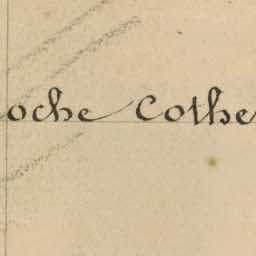 oche Cothe